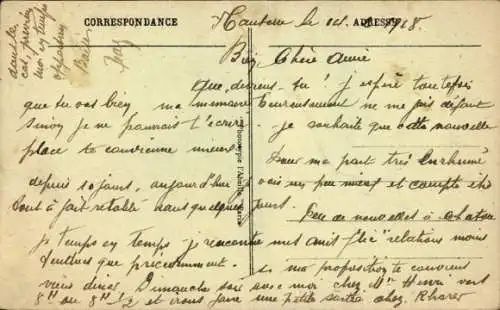 CORRESPONDANCE
ADRESSE
Nanterre le 1918
Bien Chère Amie
Que deviens-tu ! J'espère toutefois
que tu vas bien ma
heureusement ne me fais défaut
sinon je ne pourrais t'écrire
je souhaite que cette nouvelle
place te convienne mieux
Pour ma part très enrhumé
depuis 10 jours, aujourd'hui je vais un peu mieux et compte être
tout à fait rétabli dans quelques jours.
Peu de nouvelles à
de temps en temps je rencontre mes amis "relations moins
qu'précédemment
si ma proposition te convient
viens dîner Dimanche soir avec moi chez Mr Henri vers
8H ou 8H 1/2 et irons faire une petite chez
dans le
cas, préviens
moi en temps
opportun
Baisers